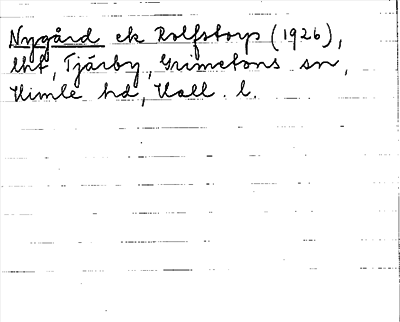 Nygård ek Rolfstorp (1926),
lht, Tjärby, Grimetons sn,
Himle hd, Hall. l.